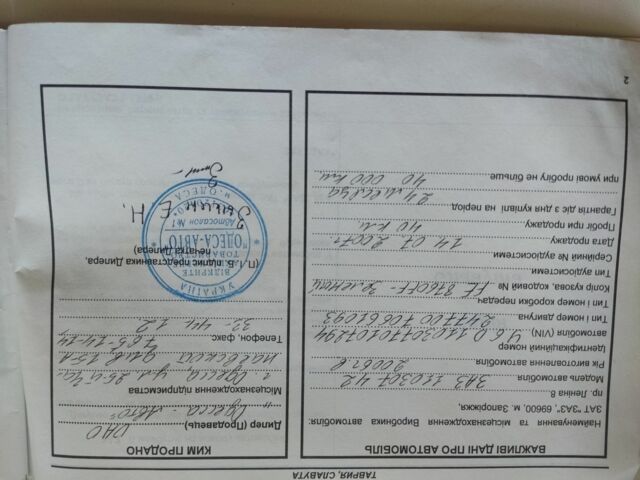 ТАВРИЯ, СЛАВУТА
ВАЖЛИВІ ДАНІ ПРО АВТОМОБІЛЬ
Найменування та місцезнаходження Виробника автомобіля:
ЗАТ "ЗАЗ", 69600, м. Запоріжжя,
пр. Леніна 8
Модель автомобіля ЗАЗ 110307 42
Рік виготовлення автомобіля 2006 р
Ідентифікаційний номер
автомобіля (VIN)
Тип і номер двигуна
Тип і номер коробки передач
Колір кузова, кодовий №
Тип аудіосистеми
Серійний № аудіосистеми
Дата продажу 14 07 2007
Пробіг при продажу 40 км
Гарантія діє з дня купівлі на період 24 місяця
при умові пробігу не більше 40 000 км
КИМ ПРОДАНО
Дилер (Продавець) ОАО
"Одесса-Авто"
Місцезнаходження підприємства
г. Одесса, ул 25-й Ча-
паевской див. 15А
Телефон, факс 765-14-14
32-44 12
(П.І.Б. підпис представника Дилера,
печатка Дилера)
УКРАЇНА
ВІДКРИТЕ
"ОДЕСА-АВТО"
Автосалон №1
м. ОДЕСА
2